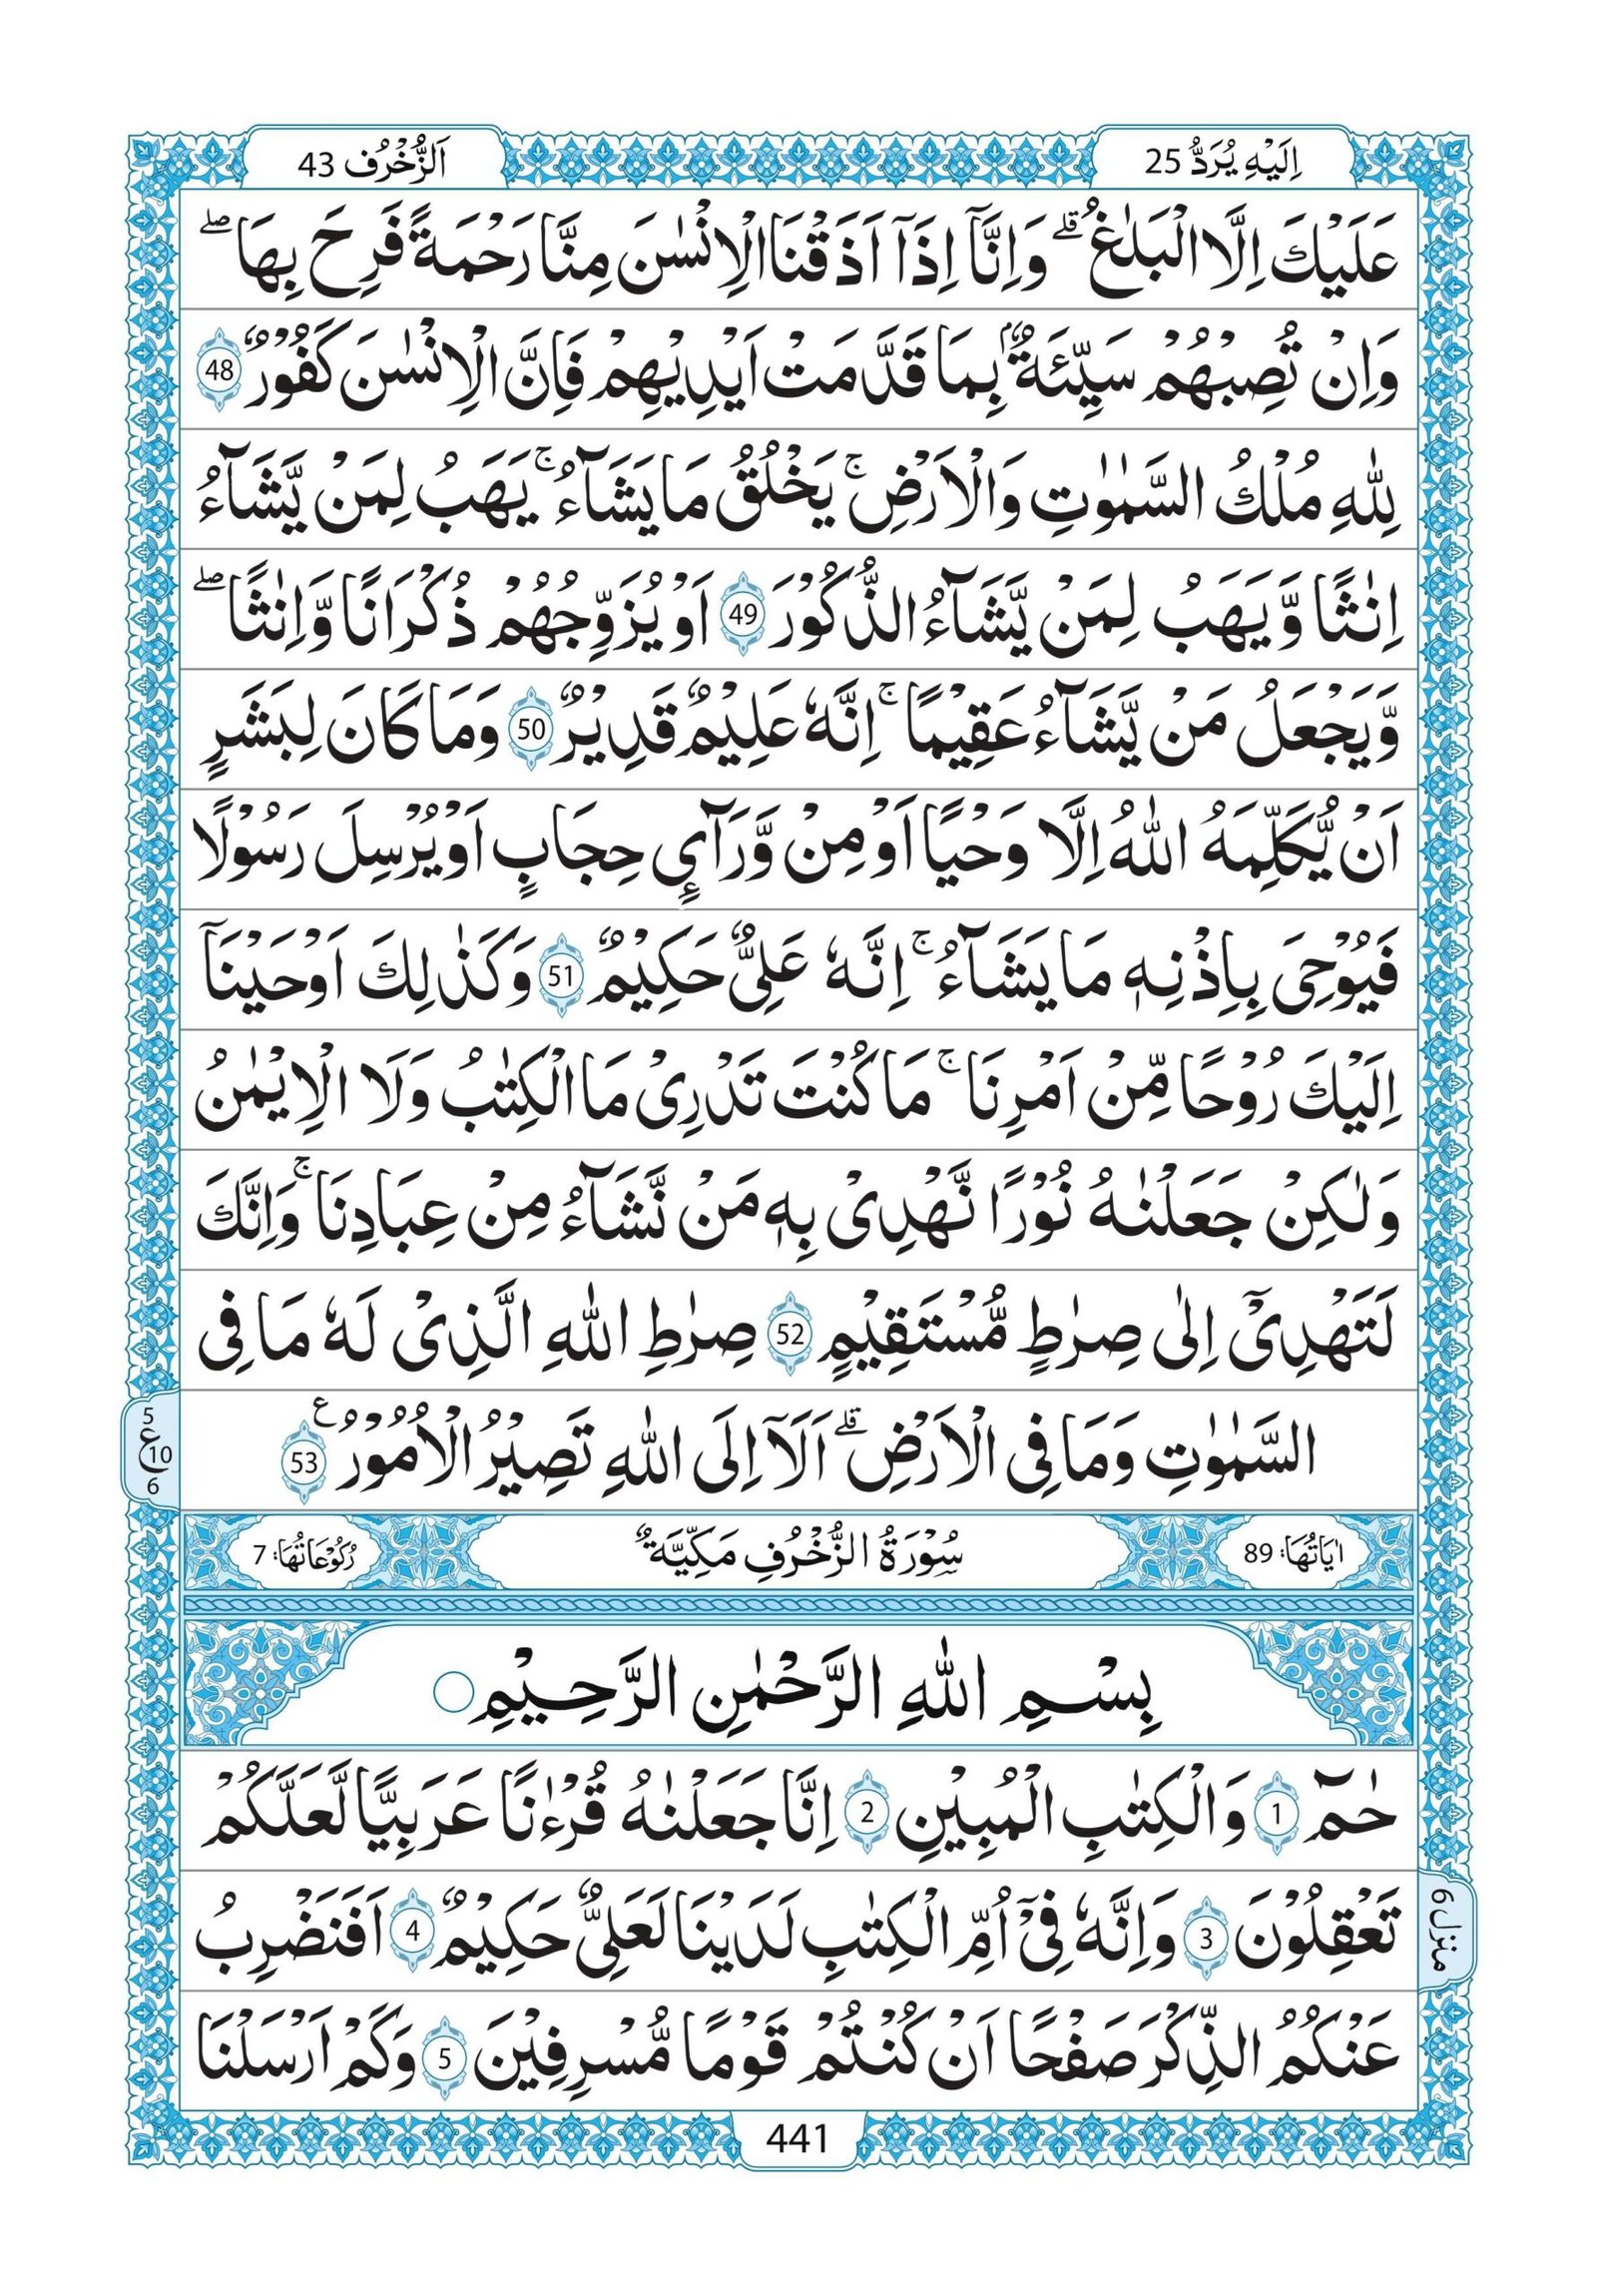 اَلزُّخْرُف 43
اِلَيْهِ يُرَدُّ 25
عَلَيْكَ اِلَّا الْبَلٰغُ ۗ وَاِنَّآ اِذَآ اَذَقْنَا الْاِنْسٰنَ مِنَّا رَحْمَةً فَرِحَ بِهَا ۖ
وَاِنْ تُصِبْهُمْ سَيِّئَةٌۢ بِمَا قَدَّمَتْ اَيْدِيْهِمْ فَاِنَّ الْاِنْسٰنَ كَفُوْرٌ 48
لِلّٰهِ مُلْكُ السَّمٰوٰتِ وَالْاَرْضِ ۚ يَخْلُقُ مَا يَشَآءُ ۚ يَهَبُ لِمَنْ يَّشَآءُ
اِنٰثًا وَّيَهَبُ لِمَنْ يَّشَآءُ الذُّكُوْرَ 49 اَوْ يُزَوِّجُهُمْ ذُكْرَانًا وَّاِنٰثًا ۖ
وَّيَجْعَلُ مَنْ يَّشَآءُ عَقِيْمًا ۚ اِنَّهٗ عَلِيْمٌ قَدِيْرٌ 50 وَمَا كَانَ لِبَشَرٍ
اَنْ يُّكَلِّمَهُ اللّٰهُ اِلَّا وَحْيًا اَوْ مِنْ وَّرَآئِ حِجَابٍ اَوْ يُرْسِلَ رَسُوْلًا
فَيُوْحِىَ بِاِذْنِهٖ مَا يَشَآءُ ۚ اِنَّهٗ عَلِىٌّ حَكِيْمٌ 51 وَكَذٰلِكَ اَوْحَيْنَآ
اِلَيْكَ رُوْحًا مِّنْ اَمْرِنَا ۚ مَا كُنْتَ تَدْرِىْ مَا الْكِتٰبُ وَلَا الْاِيْمٰنُ
وَلٰكِنْ جَعَلْنٰهُ نُوْرًا نَّهْدِىْ بِهٖ مَنْ نَّشَآءُ مِنْ عِبَادِنَا ۚ وَاِنَّكَ
لَتَهْدِىْٓ اِلٰى صِرٰطٍ مُّسْتَقِيْمٍ 52 صِرٰطِ اللّٰهِ الَّذِىْ لَهٗ مَا فِى
السَّمٰوٰتِ وَمَا فِى الْاَرْضِ ۗ اَلَآ اِلَى اللّٰهِ تَصِيْرُ الْاُمُوْرُ ع 53
5
ع 10
6
اٰيَاتُهَا: 89 سُوْرَةُ الزُّخْرُفِ مَكِّيَّةٌ رُكُوْعَاتُهَا: 7
بِسْمِ اللّٰهِ الرَّحْمٰنِ الرَّحِيْمِ
حٰمٓ 1 وَالْكِتٰبِ الْمُبِيْنِ 2 اِنَّا جَعَلْنٰهُ قُرْءٰنًا عَرَبِيًّا لَّعَلَّكُمْ
تَعْقِلُوْنَ 3 وَاِنَّهٗ فِىْٓ اُمِّ الْكِتٰبِ لَدَيْنَا لَعَلِىٌّ حَكِيْمٌ 4 اَفَنَضْرِبُ
عَنْكُمُ الذِّكْرَ صَفْحًا اَنْ كُنْتُمْ قَوْمًا مُّسْرِفِيْنَ 5 وَكَمْ اَرْسَلْنَا
منزل 6
441